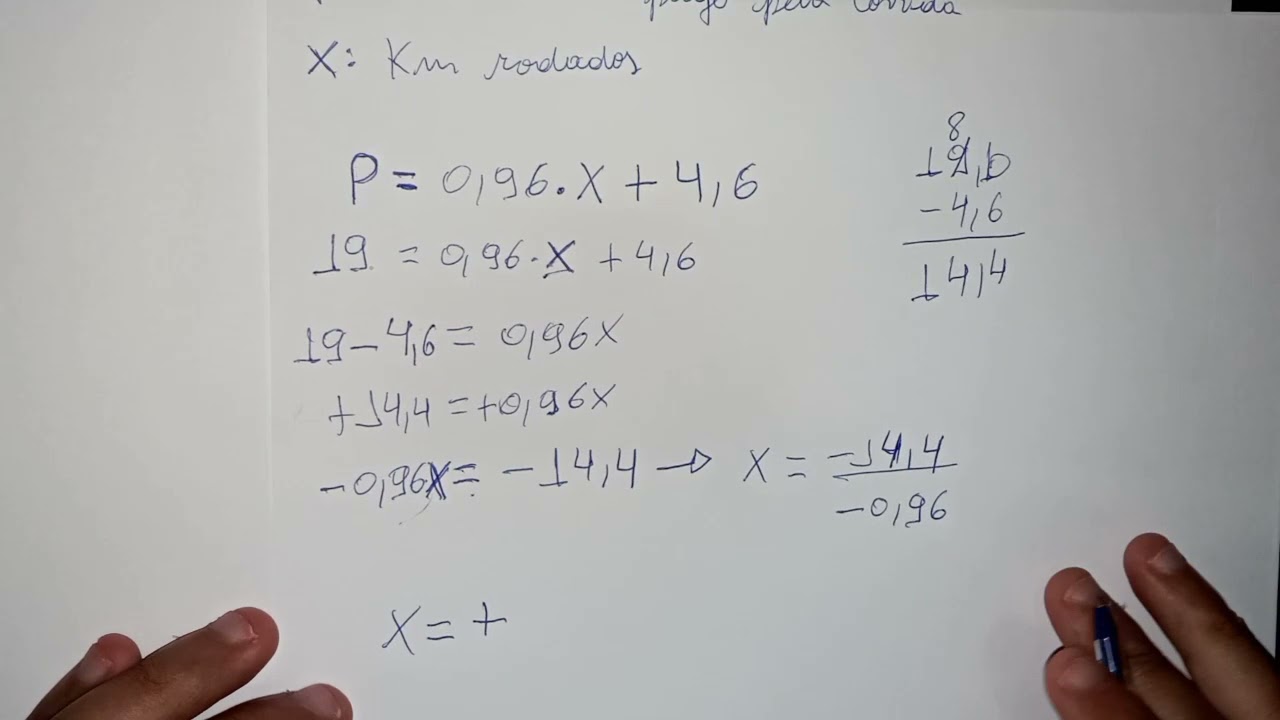 pela corrida
X: Km rodados
P = 0,96.X + 4,6
19 = 0,96.X + 4,6
19 - 4,6 = 0,96X
+14,4 = +0,96X
-0,96X = -14,4 → X = -14,4
-0,96
X = +
8
19,0
- 4,6
14,4